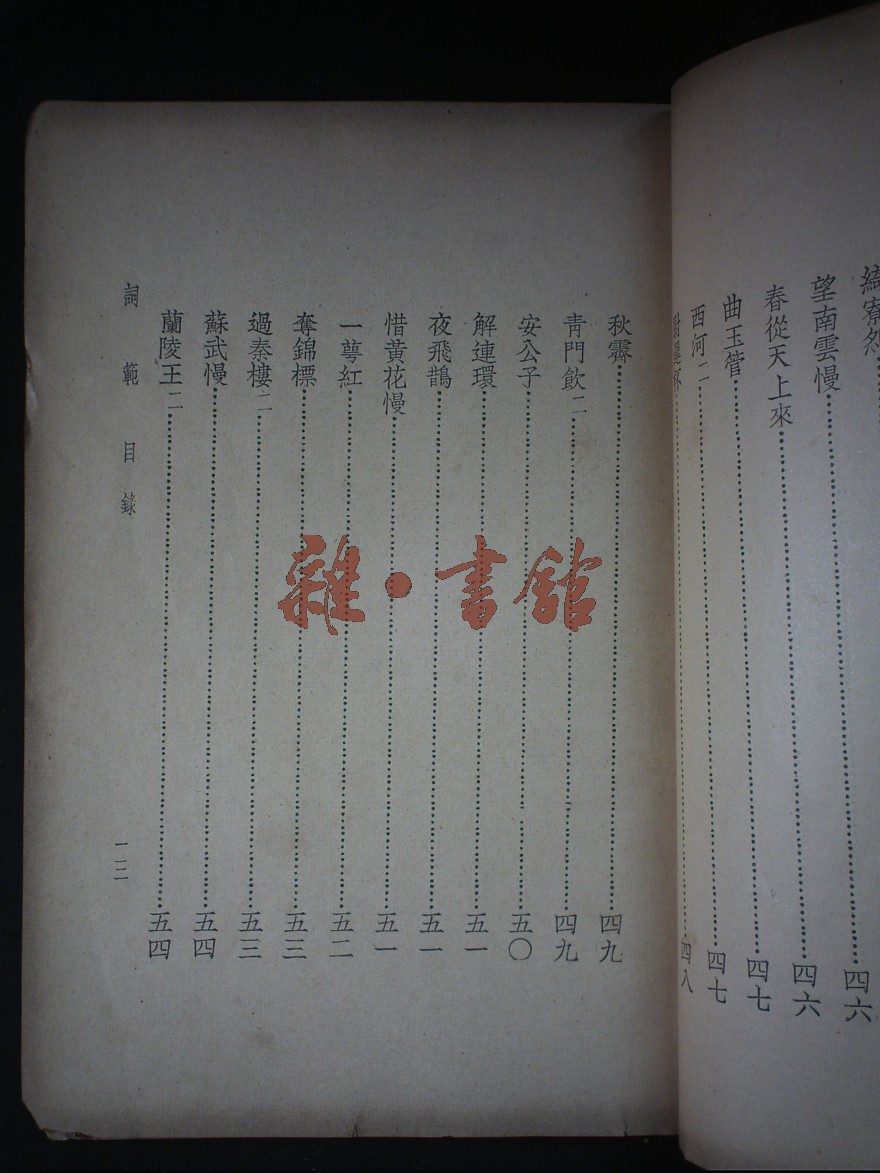 綺寮
望南雲慢⋯⋯四六
春從天上來⋯⋯四六
曲玉管⋯⋯四七
西河二⋯⋯四七
⋯⋯四八
秋霽⋯⋯四九
青門飲二⋯⋯四九
安公子⋯⋯五〇
解連環⋯⋯五一
夜飛鵲⋯⋯五一
惜黃花慢⋯⋯五一
一萼紅⋯⋯五二
奪錦標⋯⋯五三
過秦樓二⋯⋯五三
蘇武慢⋯⋯五四
蘭陵王二⋯⋯五四
詞範目錄 一二
雜·書館